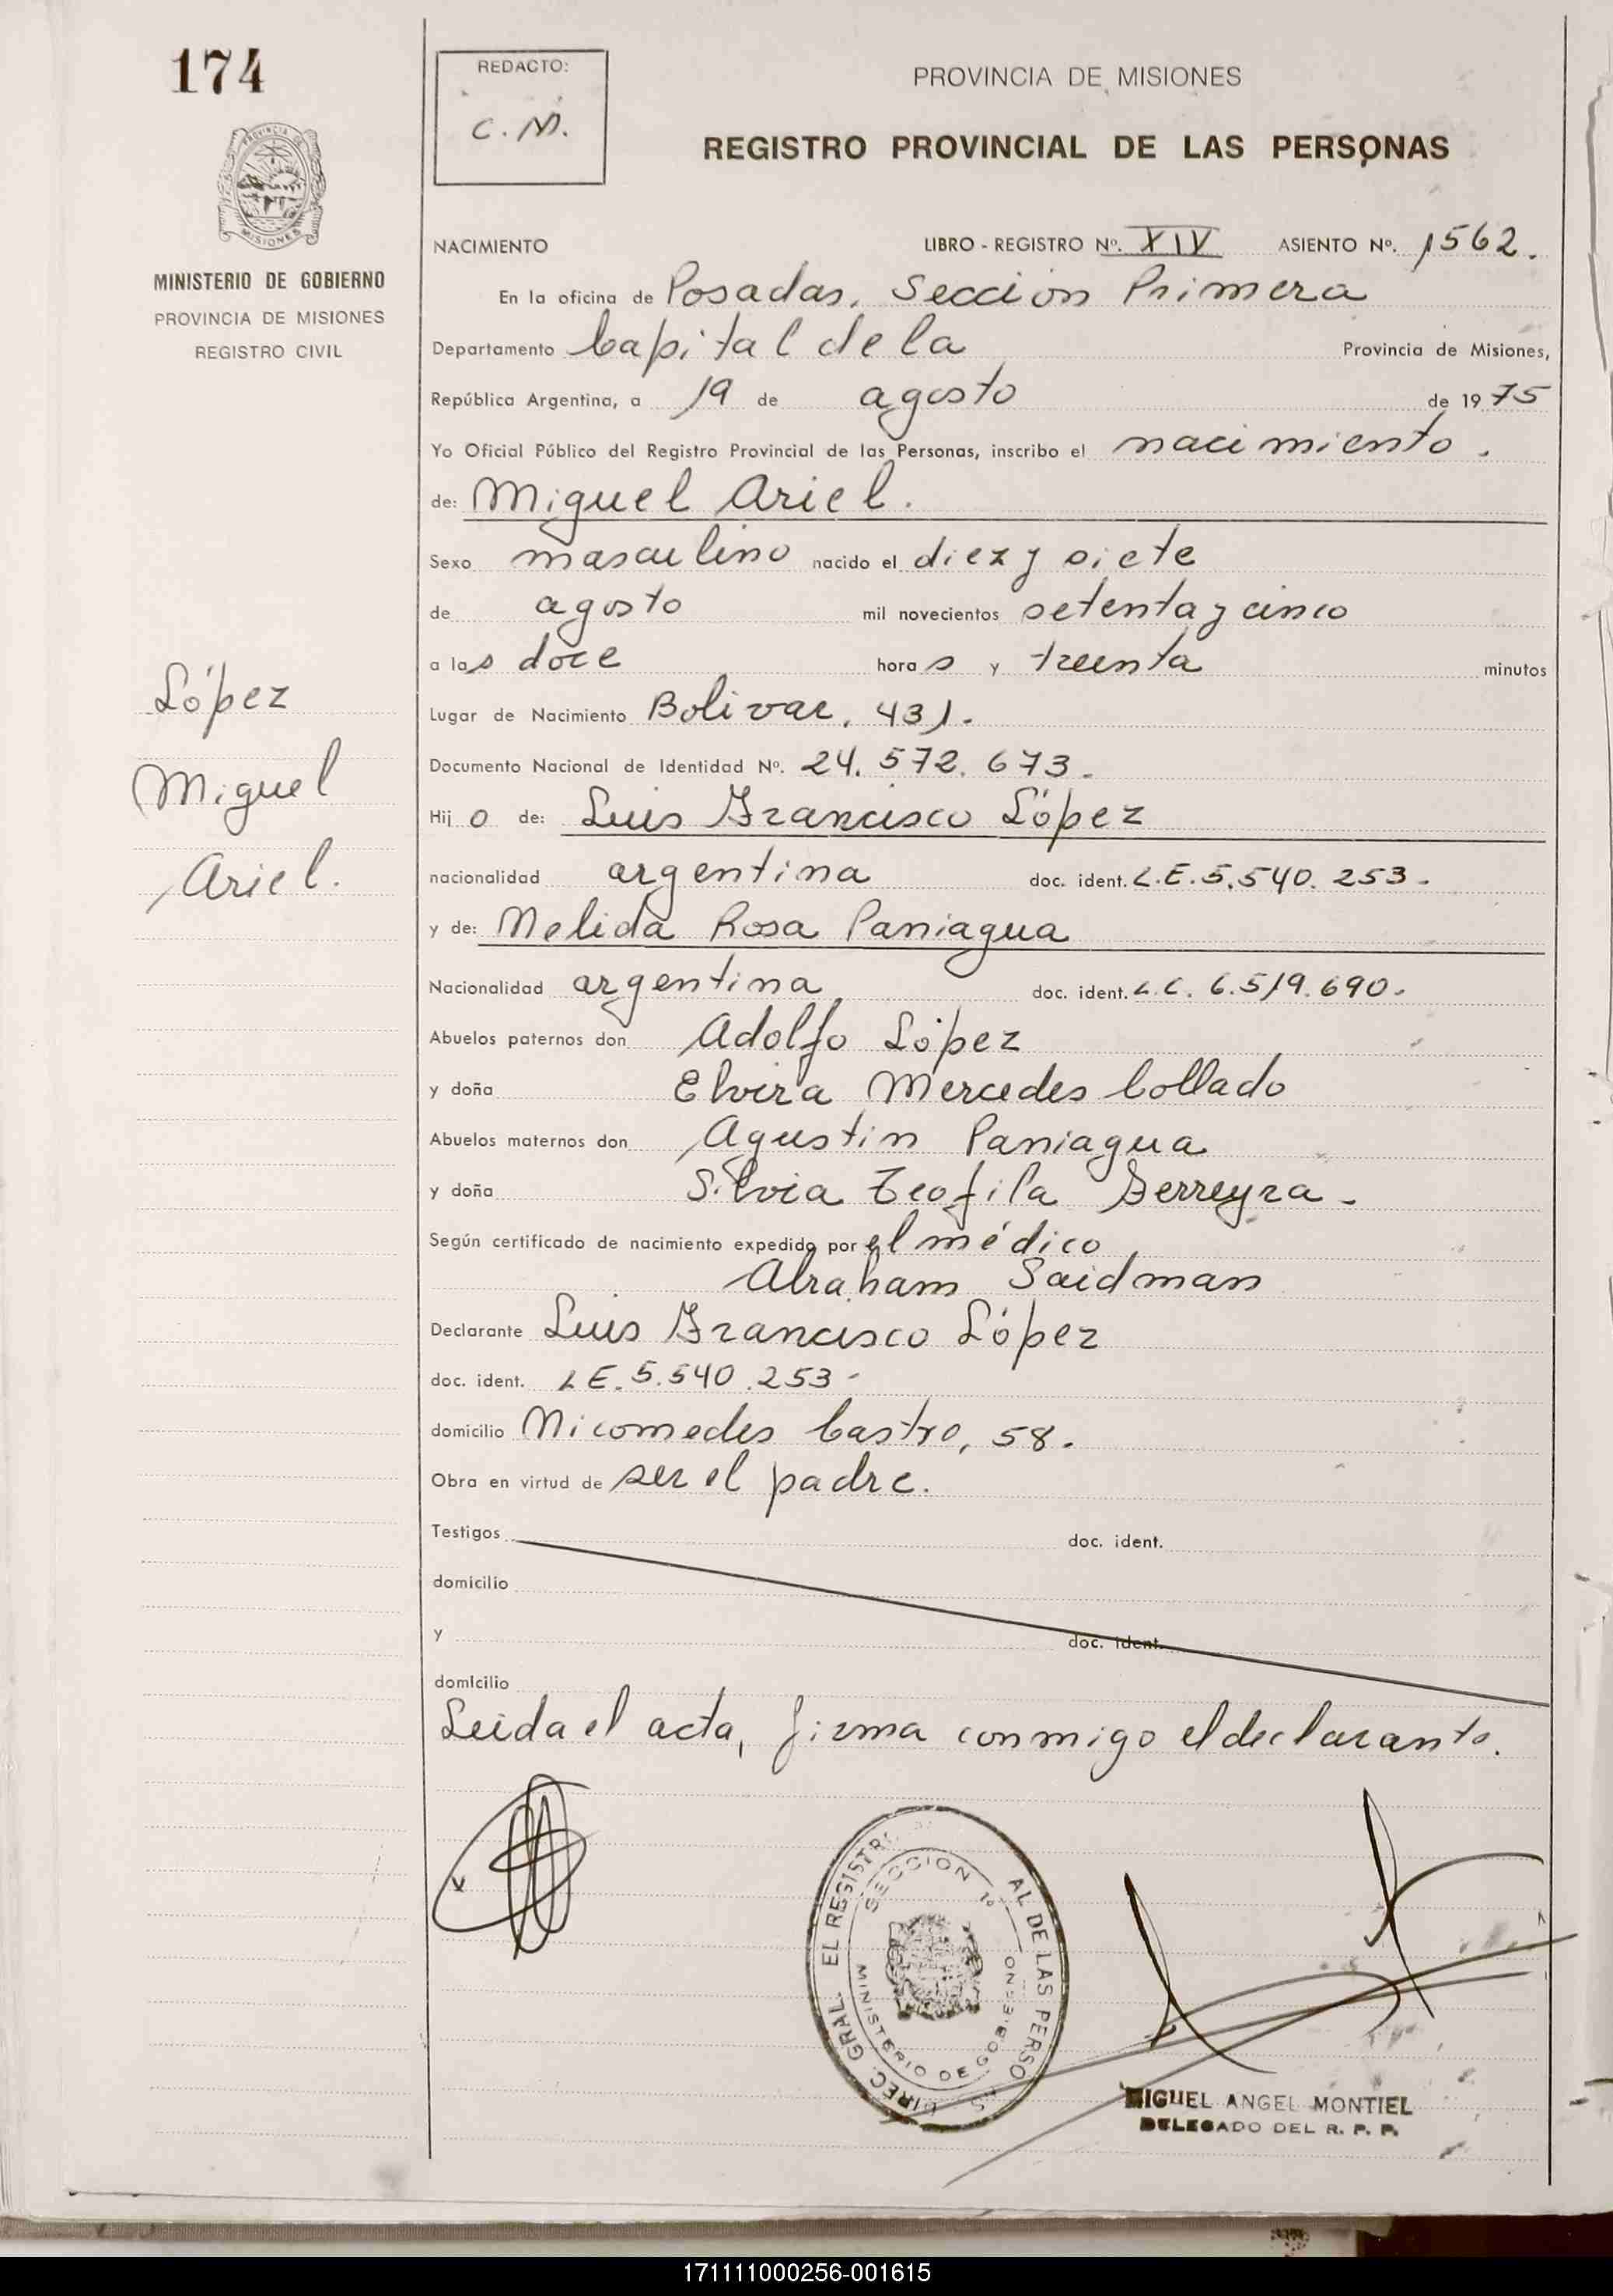 174
PROVINCIA DE
MISIONES
MINISTERIO DE GOBIERNO
PROVINCIA DE MISIONES
REGISTRO CIVIL
López
Miguel
Ariel.
REDACTO:
C. M.
PROVINCIA DE MISIONES
REGISTRO PROVINCIAL DE LAS PERSONAS
NACIMIENTO LIBRO - REGISTRO Nº. XIV ASIENTO Nº. 1562.
En la oficina de Posadas, Sección Primera
Departamento Capital de la Provincia de Misiones,
República Argentina, a 19 de agosto de 1975
Yo Oficial Público del Registro Provincial de las Personas, inscribo el nacimiento.
de: Miguel Ariel.
Sexo masculino nacido el diez y siete
de agosto mil novecientos setenta y cinco
a las doce horas y treinta minutos
Lugar de Nacimiento Bolivar, 431.
Documento Nacional de Identidad Nº. 24.572.673.
Hijo de: Luis Francisco López
nacionalidad argentina doc. ident. L.E. 5.540.253.
y de: Nelida Rosa Paniagua
Nacionalidad argentina doc. ident. L.C. 6.519.690.
Abuelos paternos don Adolfo López
y doña Elvira Mercedes Collado
Abuelos maternos don Agustin Paniagua
y doña Silvia Teofila Ferreyra.
Según certificado de nacimiento expedido por el médico
Abraham Saidman
Declarante Luis Francisco López
doc. ident. L.E. 5.540.253-
domicilio Nicomedes Castro, 58.
Obra en virtud de ser el padre.
Testigos doc. ident.
domicilio
y doc. ident.
domicilio
Leida el acta, firma conmigo el declarante.
DIREC. GRAL. EL REGISTR AL DE LAS PERSO S
SECCION 1º
MINISTERIO DE GOBIERNO
MIGUEL ANGEL MONTIEL
DELEGADO DEL R. P. P.
171111000256-001615